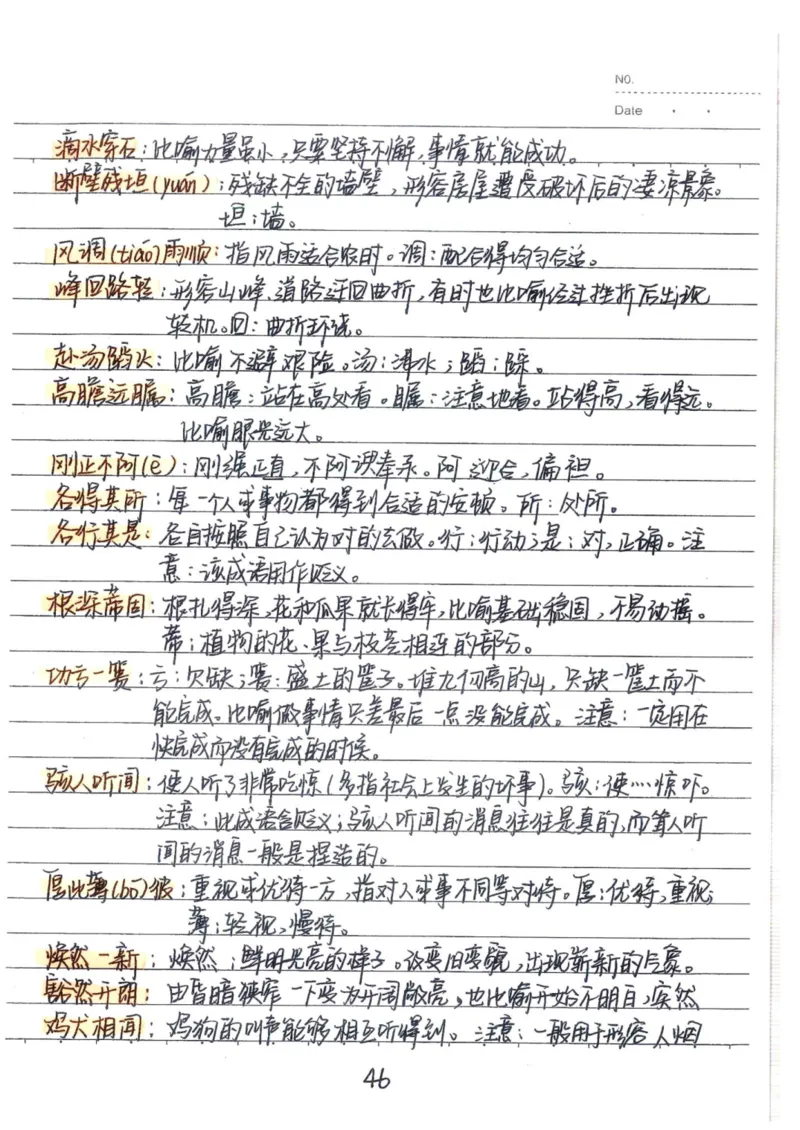 NO.
Date
滴水穿石：比喻力量虽小，只要坚持不懈，事情就能成功。
断壁残垣(yuán)：残缺不全的墙壁，形容房屋遭受破坏后的凄凉景象。
垣：墙。
风调(tiáo)雨顺：指风雨适合农时。调：配合得均匀合适。
峰回路转：形容山峰、道路迂回曲折，有时也比喻经过挫折后出现
转机。回：曲折环绕。
赴汤蹈火：比喻不避艰险。汤：沸水；蹈：踩。
高瞻远瞩：高瞻：站在高处看。瞩：注意地看。站得高，看得远。
比喻眼光远大。
刚正不阿(ē)：刚强正直，不阿谀奉承。阿：迎合，偏袒。
各得其所：每一个人或事物都得到合适的安顿。所：处所。
各行其是：各自按照自己认为对的去做。行：行动；是：对，正确。注
意：该成语用作贬义。
根深蒂固：根扎得深，花和瓜果就长得牢，比喻基础稳固，不易动摇。
蒂：植物的花、果与枝茎相连的部分。
功亏一篑：亏：欠缺；篑：盛土的筐子。堆九仞高的山，只缺一筐土而不
能完成。比喻做事情只差最后一点没能完成。注意：一定用在
快完成而没有完成的时候。
骇人听闻：使人听了非常吃惊(多指社会上发生的坏事)。骇：使…惊吓。
注意：此成语含贬义；骇人听闻的消息往往是真的，而耸人听
闻的消息一般是捏造的。
厚此薄(bó)彼：重视或优待一方，指对人或事不同等对待。厚：优待，重视；
薄：轻视，慢待。
焕然一新：焕然：鲜明光亮的样子。改变旧面貌，出现崭新的气象。
豁然开朗：由昏暗狭窄一下变为开阔敞亮，也比喻开始不明白，突然
鸡犬相闻：鸡狗的叫声能够相互听得到。注意：一般用于形容人烟
46